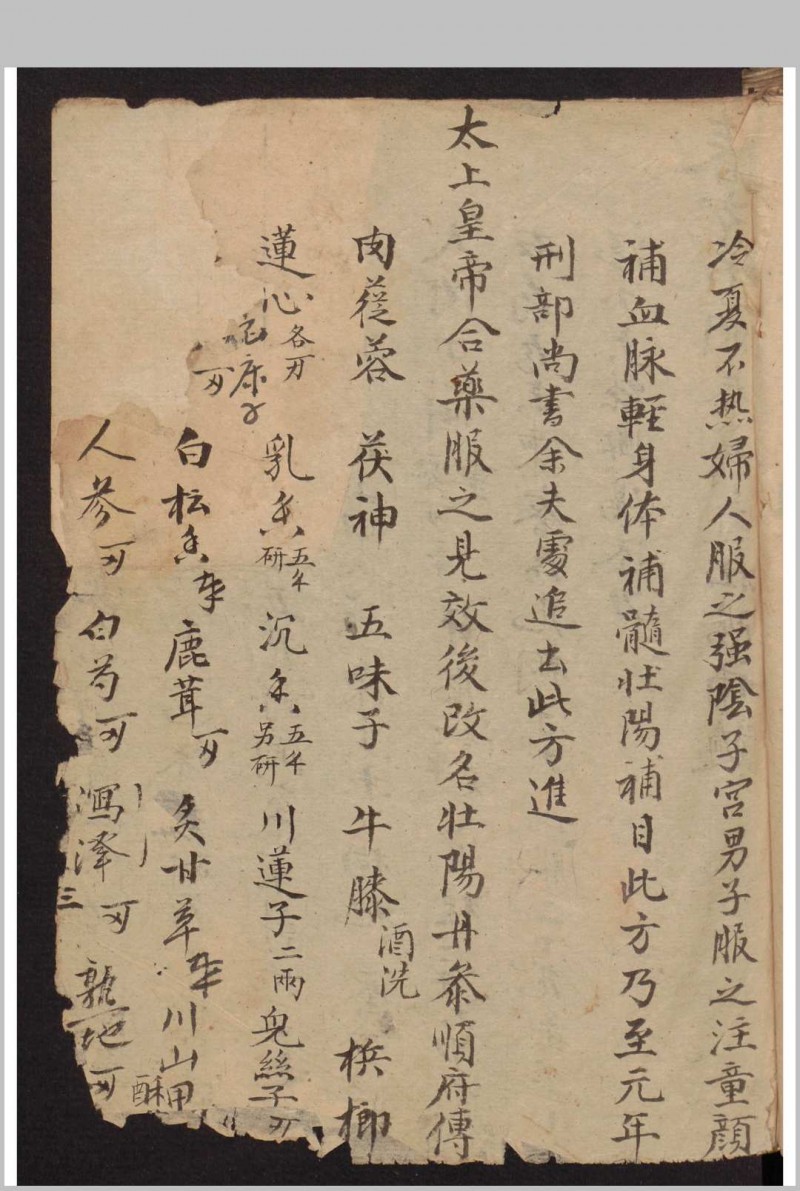 冷夏不热婦人服之强陰子宫男子服之注童顔
補血脉輕身体補髓壮陽補目此方乃至元年
刑部尚書余夫處追出此方進
太上皇帝合藥服之見效後改名壮陽丹泰順府傳
肉蓯蓉 茯神 五味子 牛膝酒洗 梹榔
蓮心各 乳香五千研 沉香五千另研 川蓮子二兩 兔絲子
白松香 鹿茸 炙甘草 川山甲酥
人參 白芍 泻泽 三 熟地